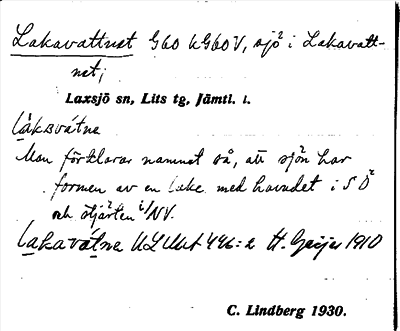 Lakavattnet G60 kG60V, sjö i Lakavatt-
net;
Laxsjö sn, Lits tg, Jämtl. l.
làkavátna
Man förklarar namnet så, att sjön har
formen av en lake med huvudet i SÖ
och stjärten i NV.
lakavátna ULMA 446:2 H. Geijer 1910
C. Lindberg 1930.